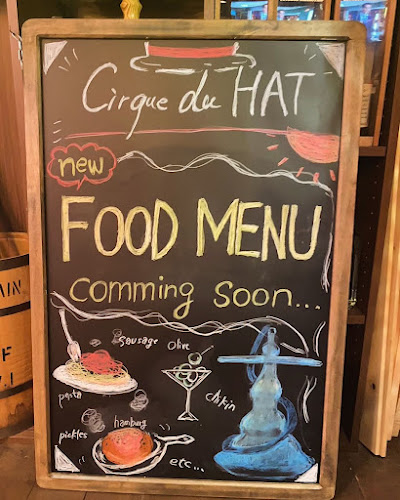 Cirque du HAT
new
FOOD MENU
comming soon...
sausage
olive
pasta
chikin
hamburg
pickles
etc...
AIN
F
V.1